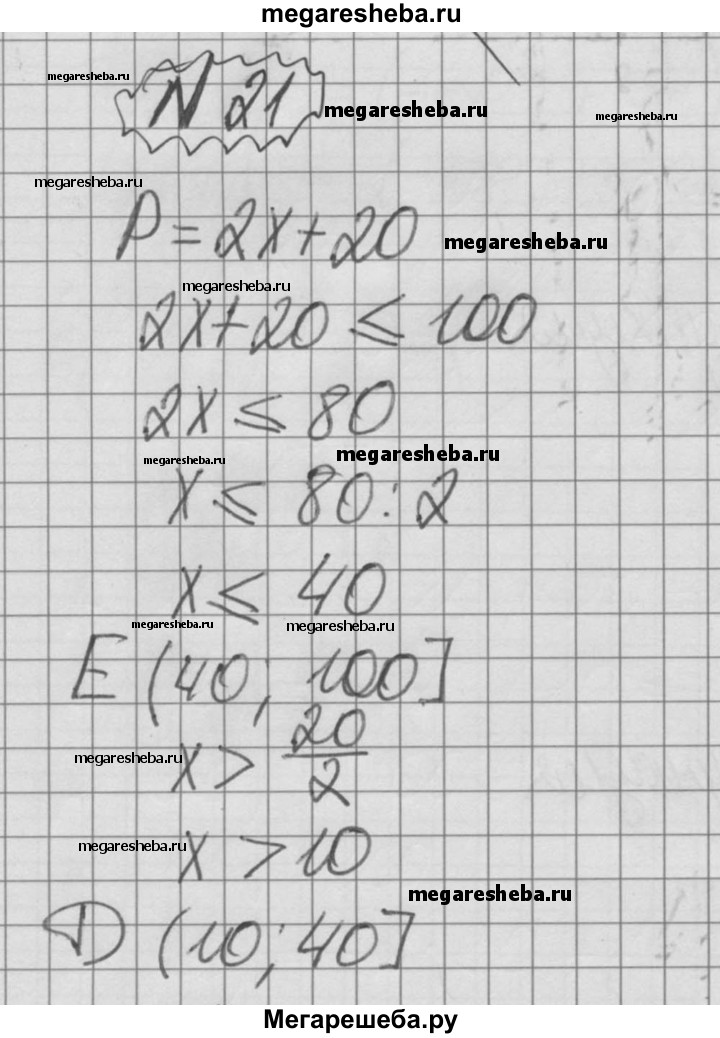 megaresheba.ru
megaresheba.ru
N 21
megaresheba.ru
megaresheba.ru
megaresheba.ru
P = 2x + 20
megaresheba.ru
megaresheba.ru
2x + 20 ≤ 100
2x ≤ 80
megaresheba.ru
megaresheba.ru
x ≤ 80 : 2
x ≤ 40
megaresheba.ru
megaresheba.ru
E (40; 100]
x > 20/2
megaresheba.ru
x > 10
megaresheba.ru
megaresheba.ru
D (10; 40]
Мегарешеба.ру